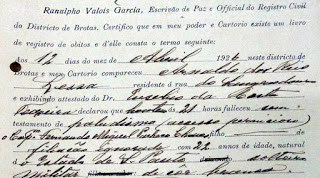 Ranalpho Valois Garcia, Escrivão de Paz e Official do Registro Civil
do Districto de Brotas. Certifico que em meu poder e Cartorio existe um livro
de registro de obitos e d'elle consta o termo seguinte:
Aos 12 dias do mez de Abril 1926 neste districto
de Brotas e meu Cartorio compareceu Arnaldo dos Reis
Lessa residente á rua
e exhibindo attestado do Dr. da Costa
declarou 21 horas falleceu sem
testamento de paludismo
o Capm Fernando Miguel Pacheco Chaves, filho
filiação ignorada com 22 annos de idade, natural
o Estado de S. Paulo solteiro
militar de cor branca